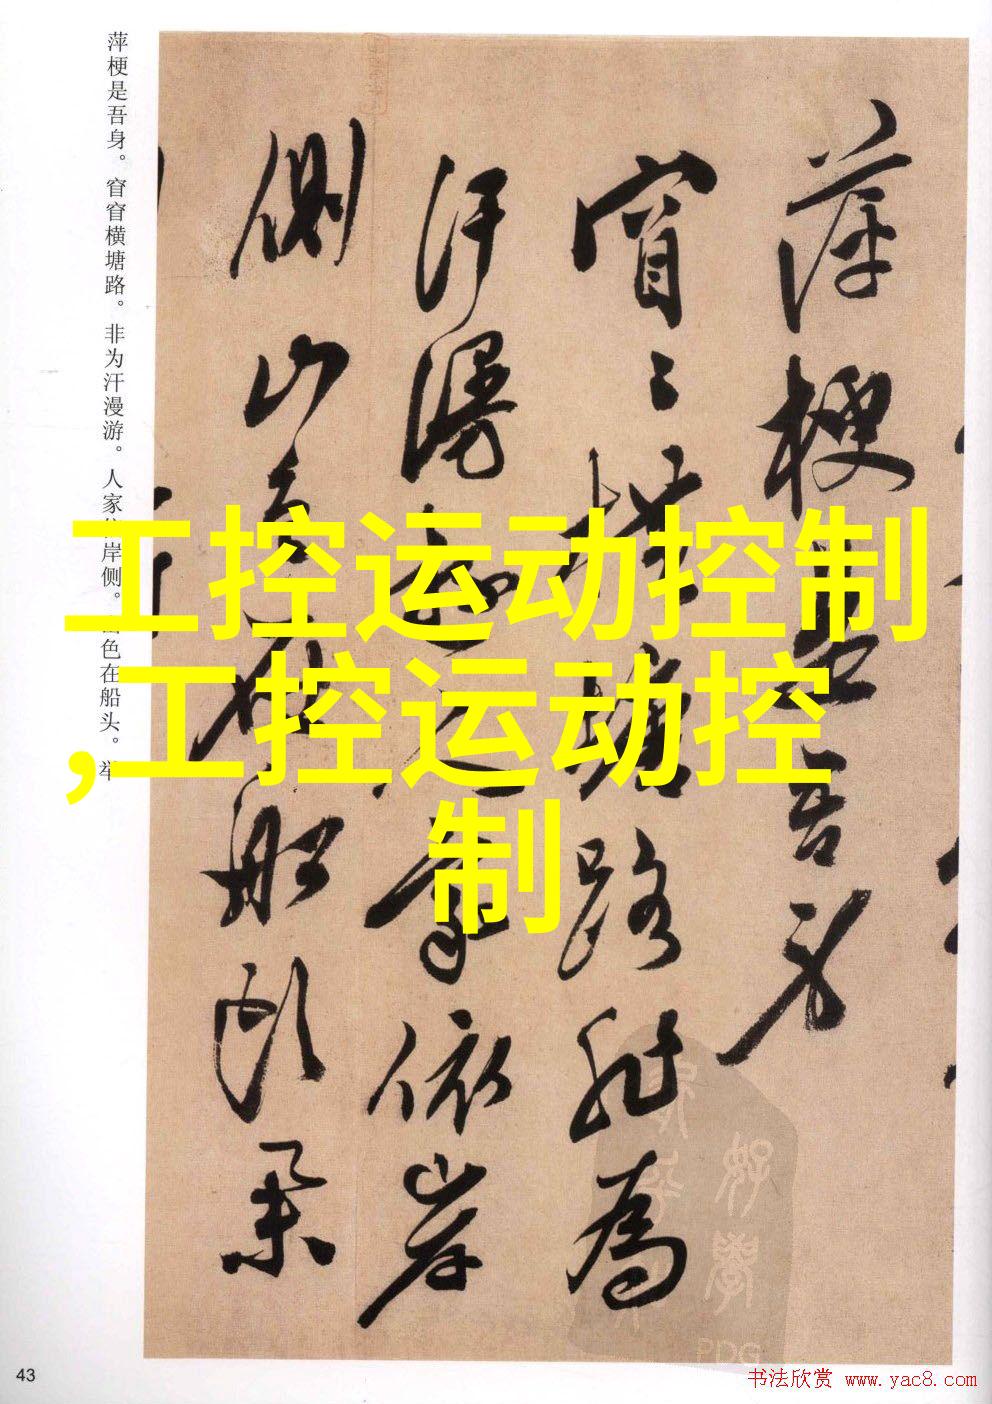 萍梗是吾身。窅窅横塘路。非为汗漫游。人家依岸侧。山色在船头。举
萍梗是吾身
窅窅横塘路非为
汗漫游人家依岸
侧山色在船头
工控运动控制
,工控运动控
制
好学
PDG
43
书法欣赏 www.yac8.com